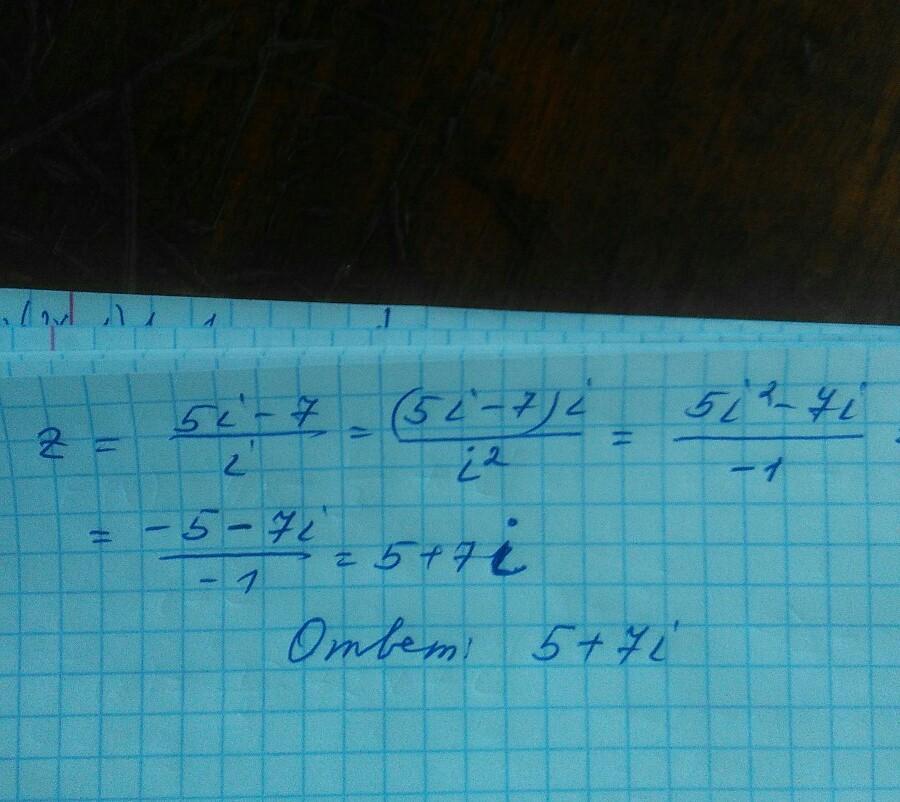 z = (5i - 7)/i = ((5i - 7)i)/i² = (5i² - 7i)/-1 =
= (-5 - 7i)/-1 = 5 + 7i
Ответ: 5 + 7i